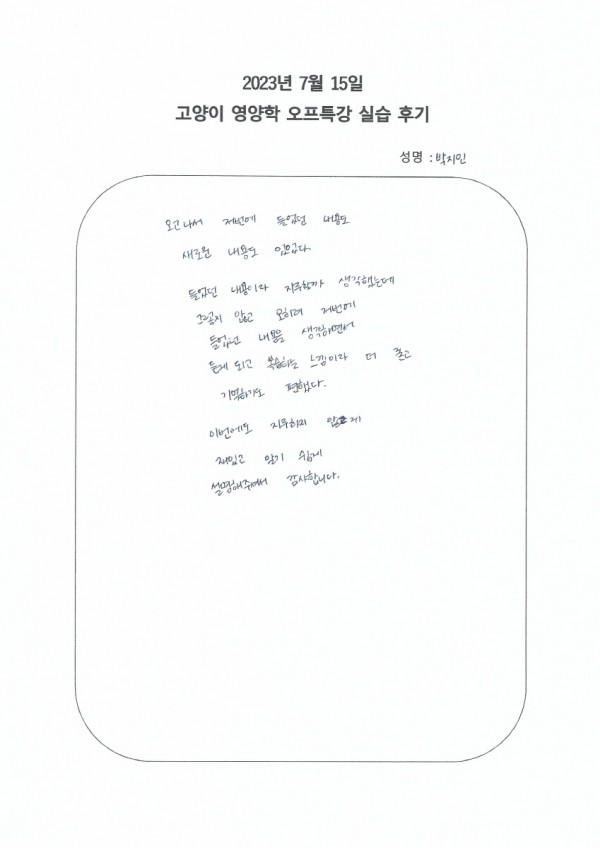 2023년 7월 15일
고양이 영양학 오프특강 실습 후기
성명 : 박지인
오고나서 저번에 들었던 내용도
새로운 내용도 있었다.
들었던 내용이라 지루할까 생각했는데
그렇지 않고 오히려 저번에
들었던 내용을 생각하면서
듣게 되고 복습되는 느낌이라 더 좋고
기억하기도 편했다.
이번에도 지루하지 않게
재밌고 알기 쉽게
설명해주셔서 감사합니다.